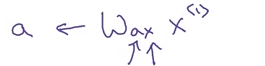 a ← Wax x<1>